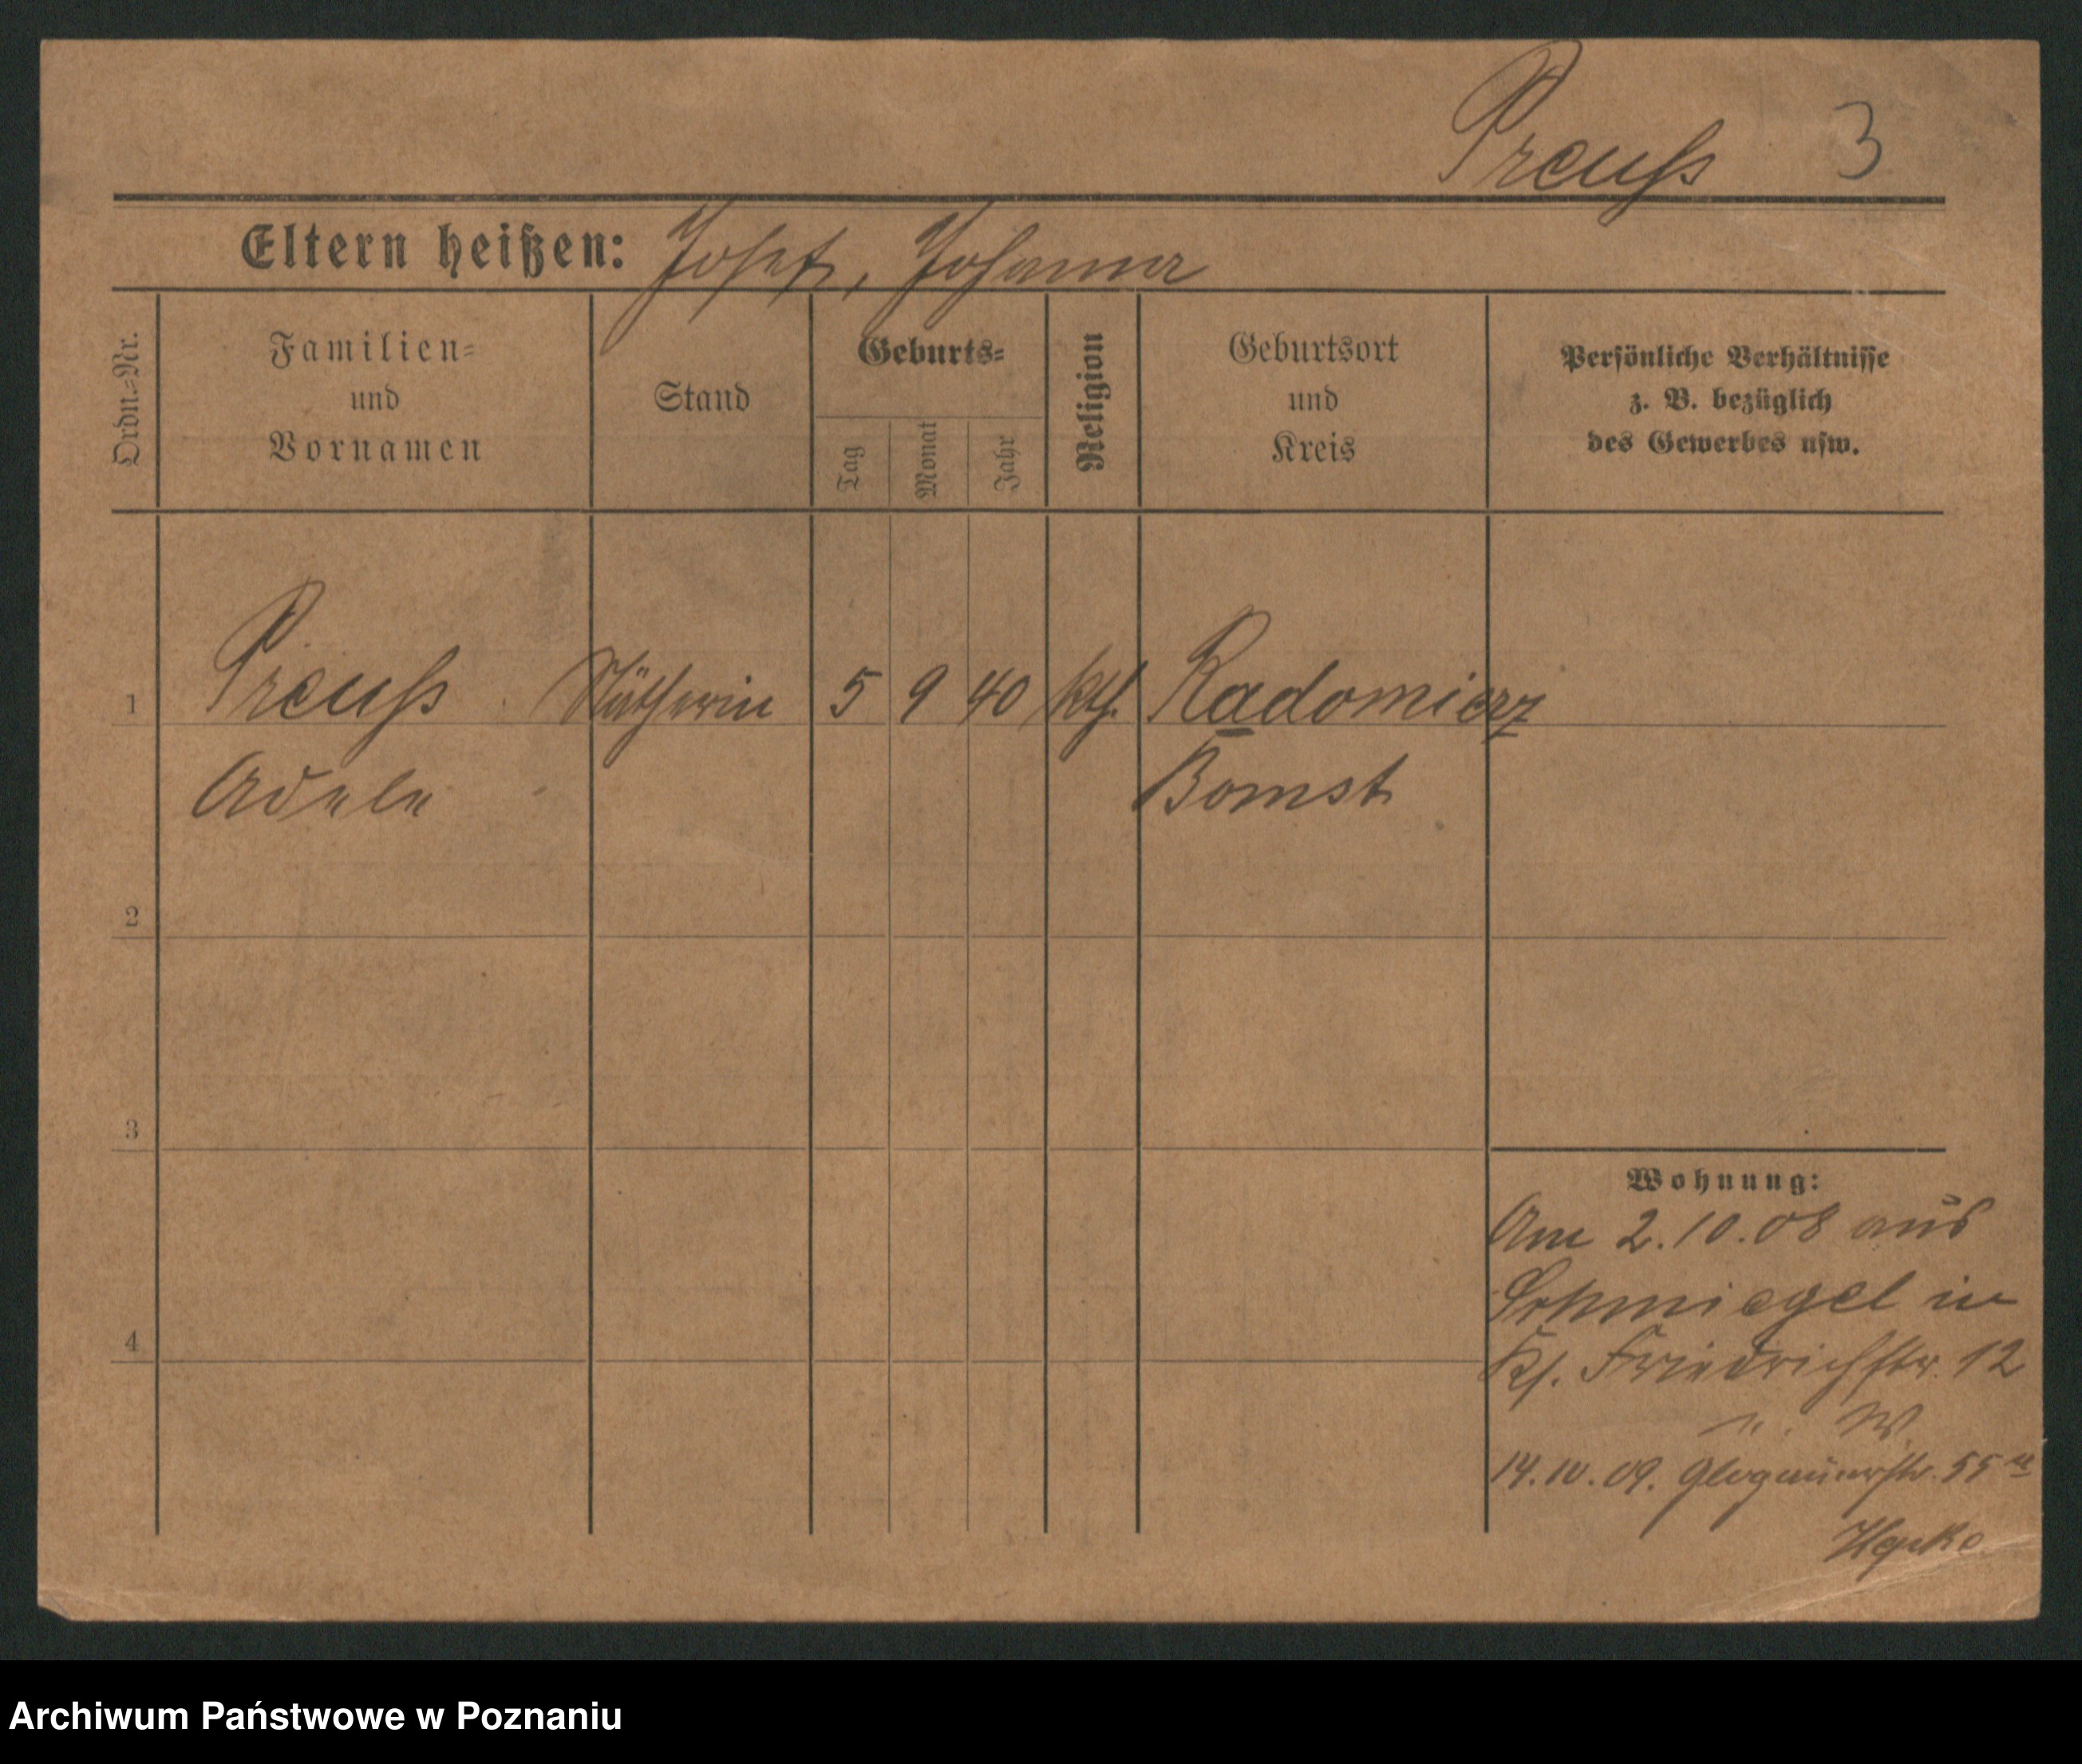 Preuß 3
Eltern heißen: Josef, Johanna
Ordn.-Nr.
Familien-
und
Vornamen
Stand
Geburts-
Tag
Monat
Jahr
Religion
Geburtsort
und
Kreis
Persönliche Verhältnisse
z. B. bezüglich
des Gewerbes usw.
1 Preuß Nätherin 5 9 40 kth. Radomierz
Adele Bomst
2
3
4
Wohnung:
Am 2.10.08 aus
Schmiegel in
Friedrichstr. 12
14.10.09. Glogauerstr. 55
Archiwum Państwowe w Poznaniu